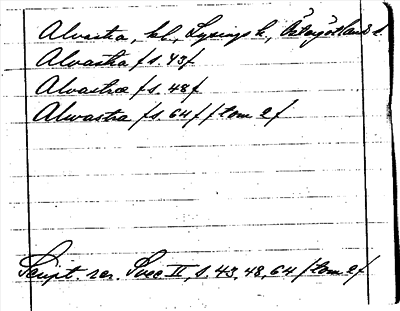 Alvastra, kl., Lysings h., Östergötlands l.
Alvastra / s. 43 /
Alvastra / s. 48 /
Alwastra / s. 64 / / tom 2 /
Script. rer. Svec II, s. 43, 48, 64 / tom 2 /